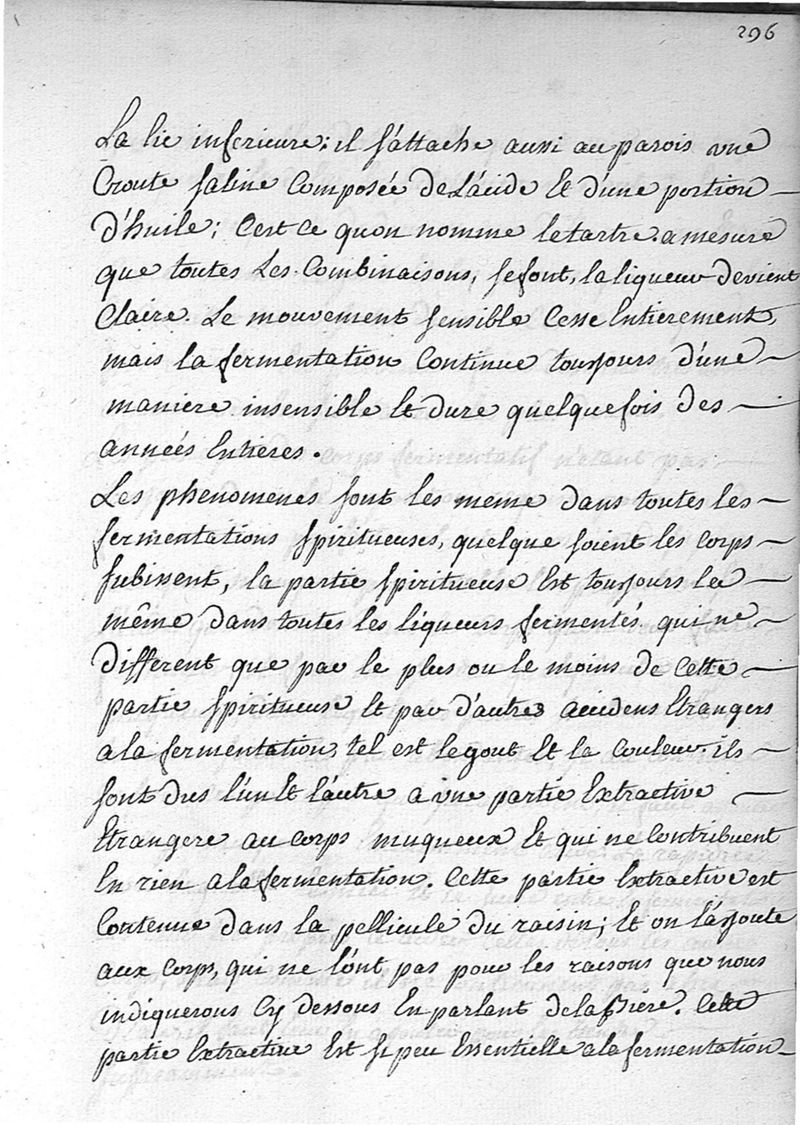 296
La lie inferieure; il s'attache aussi au parois une
Croute saline Composée de L'acide Et d'une portion
d'huile; C'est ce qu'on nomme le tartre. a mesure
que toutes Les Combinaisons, se font, la liqueur devient
Claire. Le mouvement sensible Cesse Entierement,
mais la fermentation Continue tousjours d'une
maniere insensible Et dure quelquefois des
années Entieres.
Les phenomenes sont les meme dans toutes les
fermentations spiritueuses, quelque soient les corps
subissent, la partie spiritueuse Est tousjours la
même dans toutes les liqueurs fermentés qui ne
different que par le plus ou le moins de Cette
partie spiritueuse Et par d'autres accidens Etrangers
a la fermentation, tel est le gout Et la Couleur. ils
sont dus l'un Et l'autre a une partie Extractive
Etrangere au corps muqueux Et qui ne Contribuent
En rien a la fermentation. Cette partie Extractive est
Contenue dans la pellicule du raisin; Et on l'ajoute
aux Corps, qui ne l'ont pas pour les raisons que nous
indiquerous Cy dessous En parlant de la Biere. Cette
partie Extractive Est si peu Essentielle a la fermentation